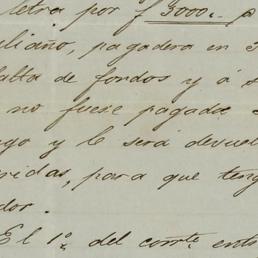 letra por $ 3000,, p
uliaño, pagadera en 3
falta de fondos y á s
no fuese pagada s
go y le será devuel
ridas, para que teng
dor.
El 1º. del corrte. ent